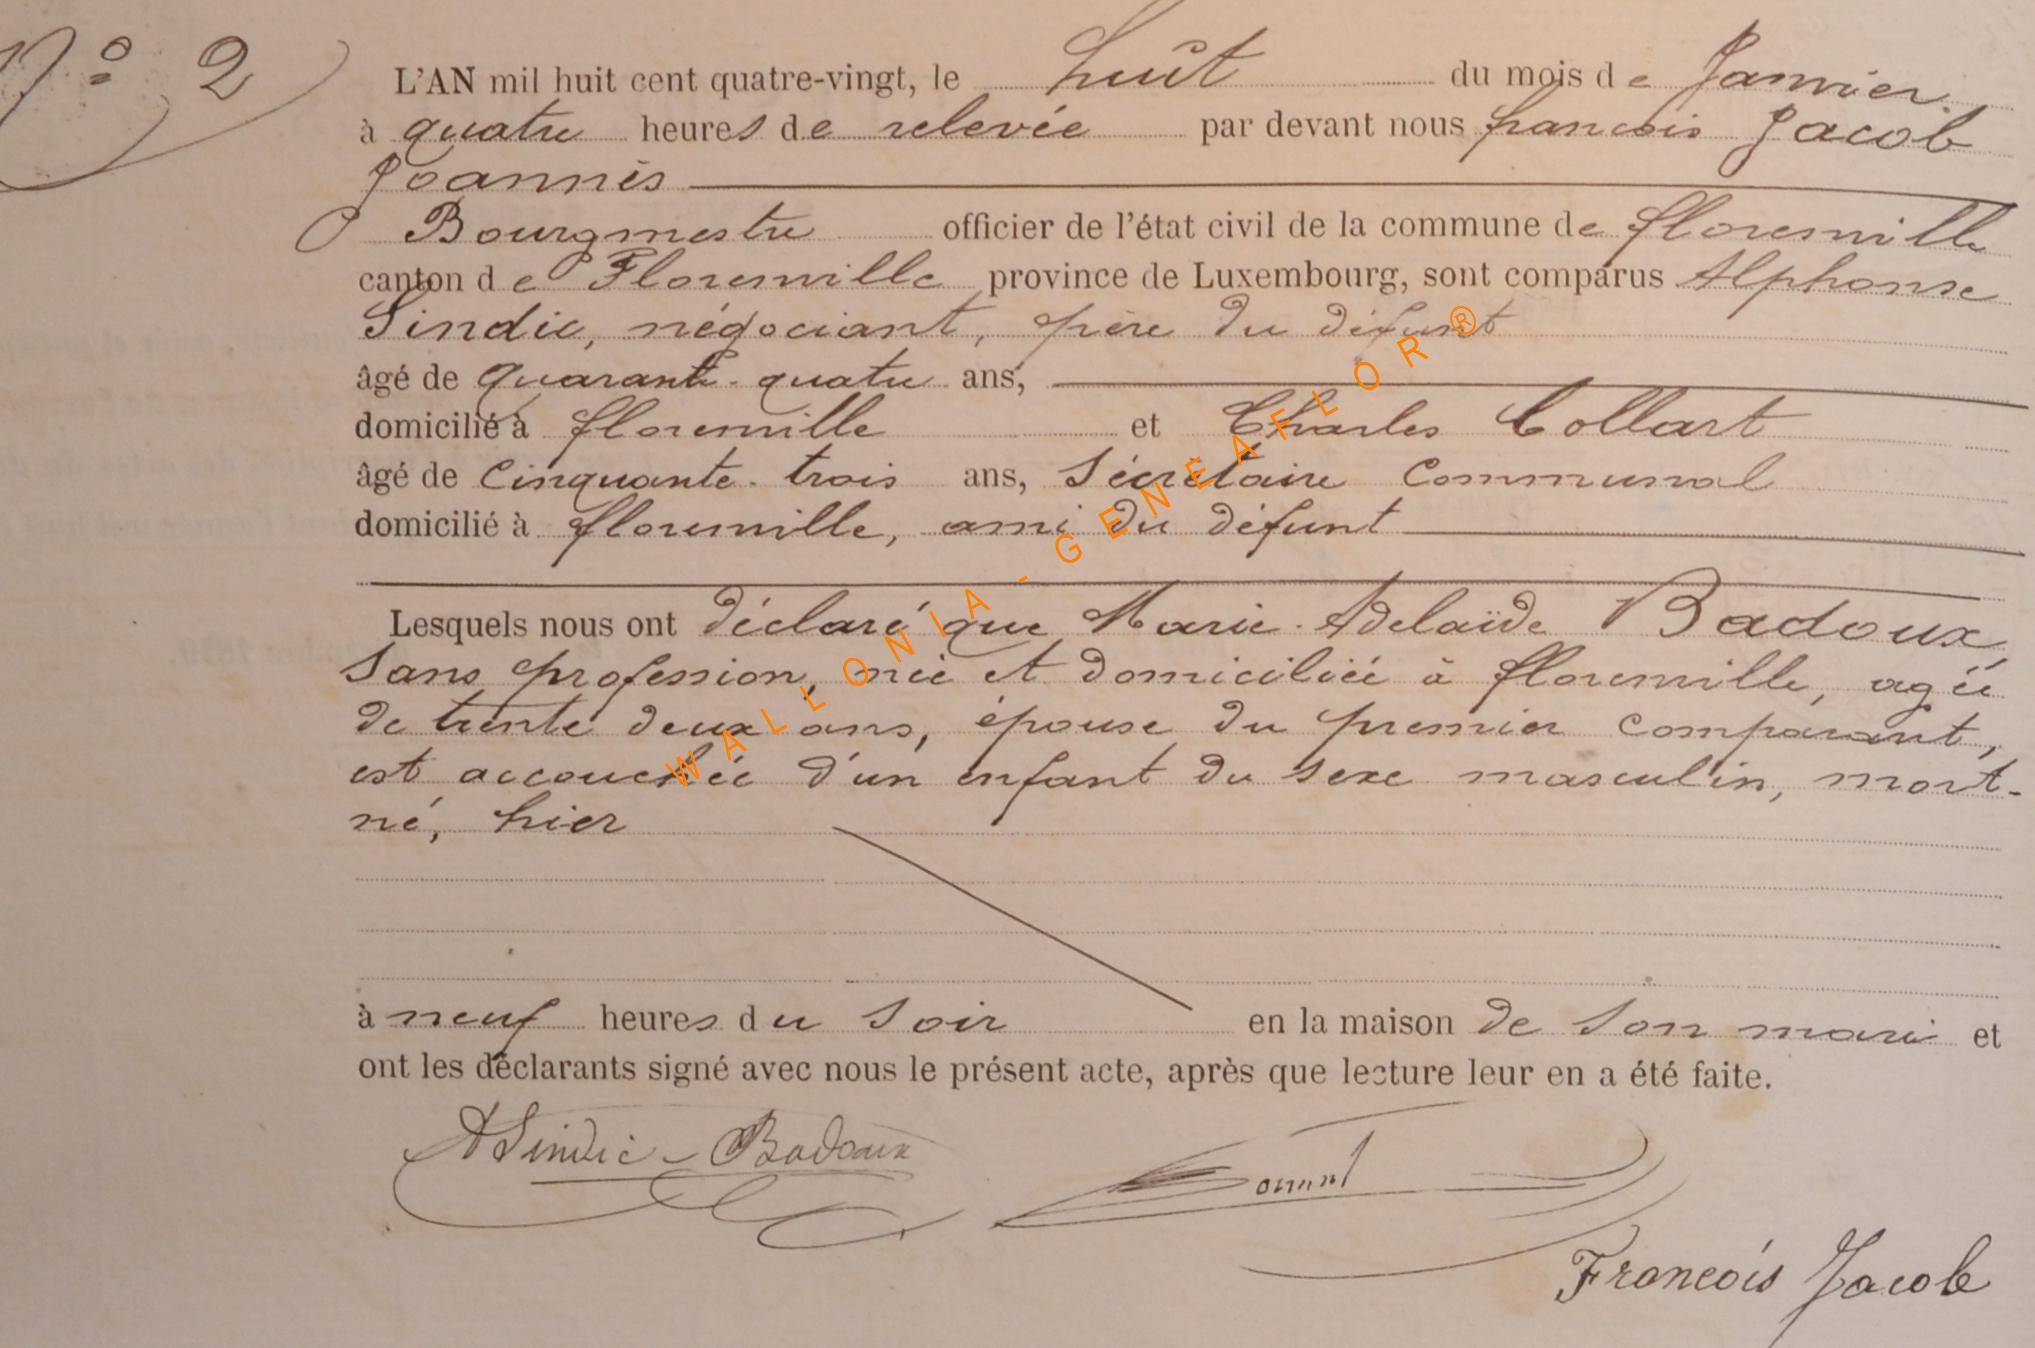 N° 2
L'AN mil huit cent quatre-vingt, le huit du mois de Janvier
à quatre heures de relevée par devant nous françois Jacob
Joannès
Bourgmestre officier de l'état civil de la commune de florenville
canton de Florenville province de Luxembourg, sont comparus Alphonse
Sindic, négociant, père du défunt
âgé de quarante-quatre ans,
domicilié à florenville et Charles Collart
âgé de cinquante-trois ans, Secrétaire Communal
domicilié à florenville, ami du défunt
Lesquels nous ont déclaré que Marie-Adelaïde Badoux,
sans profession, née et domiciliée à florenville, agée
de trente deux ans, épouse du premier comparant,
est accouchée d'un enfant du sexe masculin, mort-
né, hier
à neuf heures du soir en la maison de son mari et
ont les déclarants signé avec nous le présent acte, après que lecture leur en a été faite.
ASindic-Badoux
François Jacob
WALLONIA-GENEAFLOR®